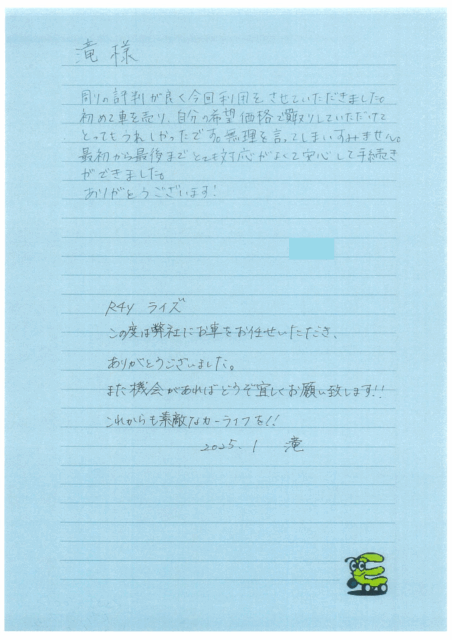 滝様
周りの評判が良く今回利用をさせていただきました。
初めて車を売り、自分の希望価格で買取りしていただけて
とってもうれしかったです。無理を言ってしまいすみません。
最初から最後までとても対応がよくて安心して手続き
ができました。
ありがとうございます!
R4y ライズ
この度は弊社にお車をお任せいただき、
ありがとうございました。
また機会があればどうぞ宜しくお願い致します!!
これからも素敵なカーライフを!!
2025.1 滝